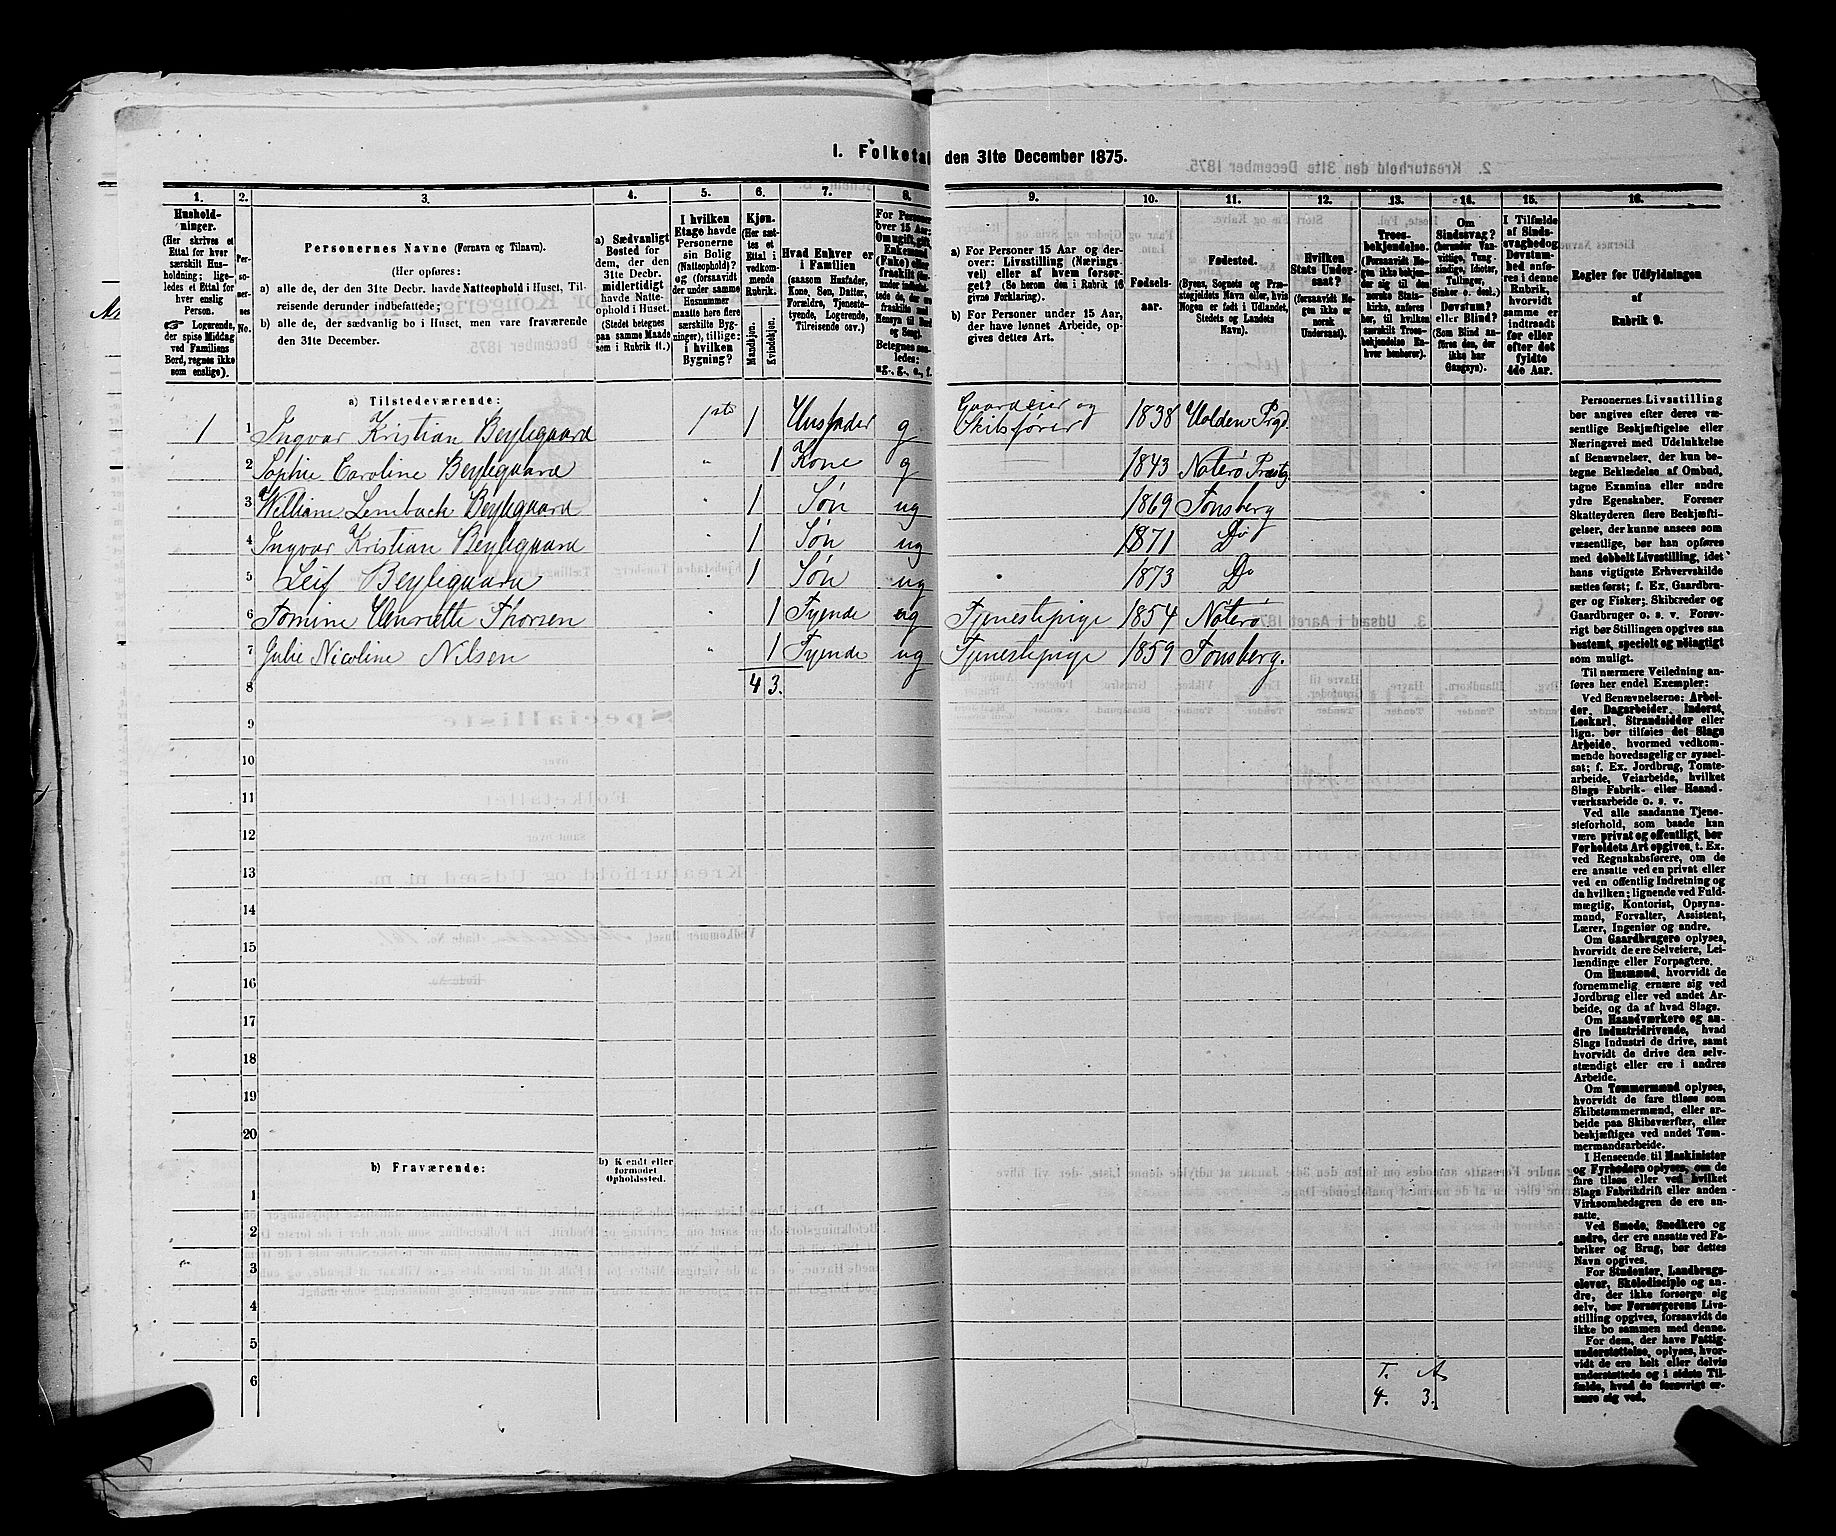 1. Folketal den 31te December 1875.
1. 2. 3. 4. 5. 6. 7. 8. 9. 10. 11. 12. 13. 14. 15. 16.
Hushold-
ninger.
(Her skrives et
Ettal for hver
særskilt Hus-
holdning; lige-
ledes et Ettal for
hver enslig
Person.
☞ Logerende,
der spise Middag
ved Familiens
Bord, regnes ikke
som enslige).
Per-
so-
ner-
nes
No.
Personernes Navne (Fornavn og Tilnavn).
(Her opføres:
a) alle de, der den 31te Decbr. havde Natteophold i Huset, Til-
reisende derunder indbefattede;
b) alle de, der sædvanlig bo i Huset, men vare fraværende
den 31te December.
a) Sædvanligt
Bosted for
dem, der den
31te Decbr.
midlertidigt
havde Natte-
ophold i Huset.
(Stedet betegnes
paa samme Maade
som i Rubrik 11.)
I hvilken
Etage havde
Personerne
sin Bolig
(Natteophold)?
og (forsaavidt
der under samme
Husnummer
maatte høre flere
særskilte Byg-
ninger), tillige:
i hvilken
Bygning?
Kjøn.
(Her sæt-
tes et
Ettal i
vedkom-
mende
Rubrik.
Mandkjøn.
Kvindekjøn.
Hvad Enhver er
i Familien
(saasom Husfader,
Kone, Søn, Datter,
Forældre, Tjeneste-
tyende, Logerende,
Tilreisende osv.)
For Personer
over 15 Aar:
Om ugift, gift,
Enkemand
(Enke) eller
fraskilt
Betegnes saa-
ledes:
ug., g., e., f.
a) For Personer 15 Aar og der-
over: Livsstilling (Nærings-
vei) eller af hvem forsør-
get? (Se herom den i Rubrik 16
givne Forklaring).
b) For Personer under 15 Aar,
der have lønnet Arbeide, op-
gives dettes Art.
Fødsels-
aar.
Fødested.
(Byens, Sognets og Præ-
stegjeldets Navn eller, hvis
Nogen er født i Udlandet,
Stedets og Landets
Navn).
Hvilken
Stats Under-
saat?
(forsaavidt No-
gen ikke er
norsk
Undersaat).
Troes-
bekjendelse.
(Forsaavidt No-
gen ikke bekjen-
der sig til den
norske Stats-
kirke, anføres
her, til hvilken
særskilt Troes-
bekjendelse En-
hver henhører).
Om
Sindssvag?
(herunder Van-
vittige, Tung-
sindige, Idioter,
Tullinger,
Sinker o. desl.)
Døvstum?
eller Blind?
(Som Blind an-
føres den, der
ikke har
Gangsyn).
I Tilfælde
af Sinds-
svaghed og
Døvstum-
hed anfø-
res i denne
Rubrik,
hvorvidt
samme er
indtraadt
før eller
efter det
fyldte
4de Aar.
Regler for Udfyldningen
af
Rubrik 9.
a) Tilstedeværende:
1 1 Ingvar Kristian Beylegaard 1ste 1 Husfader g Gaardeier og Skibsfører 1838 Holden Prgd.
2 Sophie Caroline Beylegaard " 1 Kone g 1843 Nøterø Præstg.
3 William Lembach Beylegaard " 1 Søn ug 1869 Tønsberg
4 Ingvar Kristian Beylegaard " 1 Søn ug 1871 Do
5 Leif Beylegaard " 1 Søn ug 1873 Do
6 Tomine Henriette Thorsen " 1 Tyende ug Tjenestepige 1854 Nøterø
7 Julie Nicoline Nilsen " 1 Tyende ug Tjenestepige 1859 Tønsberg.
8 4 3.
9
10
11
12
13
14
15
16
17
18
19
20
b) Fraværende:
b) Kjendt eller
formodet
Opholdssted.
1
2
3
4
5
6
T. A
4. 3.
Personernes Livsstilling
bør angives efter deres væ-
sentlige Beskjæftigelse eller
Næringsvei med Udelukkelse
af Benævnelser, der kun be-
tegne Beklædelse af Ombud,
tagne Examina eller andre
ydre Egenskaber. Forener
Skatteyderen flere Beskjæfti-
gelser, der kunne ansees som
væsentlige, bør han opføres
med dobbelt Livsstilling, idet
hans vigtigste Erhvervskilde
sættes først; f. Ex. Gaardbru-
ger og Fisker; Skibsreder og
Gaardbruger o. s. v. Forøv-
rigt bør Stillingen opgives saa
bestemt, specielt og nøiagtigt
som muligt.
Til nærmere Veiledning an-
føres her endel Exempler:
Ved Benævnelserne: Arbei-
der, Dagarbeider, Inderst,
Løskarl, Strandsidder eller
lign. bør tilføies det Slags
Arbeide, hvormed vedkom-
mende hovedsagelig er syssel-
sat; f. Ex. Jordbrug, Tomte-
arbeide, Veiarbeide, hvilket
Slags Fabrik- eller Haand-
værksarbeide o. s. v.
Ved alle saadanne Tjene-
steforhold, som baade kan
være privat og offentligt, bør
Forholdets Art opgives, t. Ex.
ved Regnskabsførere, om de
ere ansatte ved en privat eller
ved en offentlig Indretning og
da hvilken; lignende ved Fuld-
mægtig, Kontorist, Opsyns-
mand, Forvalter, Assistent,
Lærer, Ingeniør og andre.
Om Gaardbrugere oplyses,
hvorvidt de ere Selveiere, Lei-
lændinge eller Forpagtere.
Om Husmænd, hvorvidt de
fornemmelig ernære sig ved
Jordbrug eller ved andet Ar-
beide, og da af hvad Slags.
Om Haandværkere og an-
dre Industridrivende, hvad
Slags Industri de drive, samt
hvorvidt de drive den selv-
stændigt eller ere i andres
Arbeide.
Om Tømmermænd oplyses,
hvorvidt de fare tilsøs som
Skibstømmermænd, eller ar-
beide paa Skibsværfter, eller
beskjæftiges ved andet Tøm-
mermandsarbeide.
I Henseende til Maskinister
og Fyrbødere oplyses, om de
fare tilsøs eller ved hvilket
Slags Fabrikdrift eller anden
Virksomhedsgren de ere an-
satte.
Ved Smede, Snedkere og
andre, der ere ansatte ved Fa-
briker og Brug, bør dettes
Navn opgives.
For Studenter, Landbrugs-
elever, Skoledisciple og an-
dre, der ikke forsørge sig
selv, bør Forsørgerens Livs-
stilling opgives, forsaavidt de
ikke bo sammen med denne.
For dem, der have Fattig-
understøttelse, oplyses, hvor-
vidt de ere helt eller delvis
understøttede og i sidste Til-
fælde, hvad de forøvrigt er-
nære sig ved.